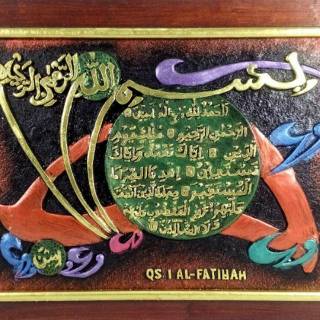 بسم الله الرحمن الرحيم
الحمد لله رب العلمين
الرحمن الرحيم ملك يوم
الدين اياك نعبد واياك
نستعين اهدنا الصراط
المستقيم صراط الذين انعمت
عليهم غير المغضوب عليهم
ولا الضالين
امين
QS I AL-FATIHAH